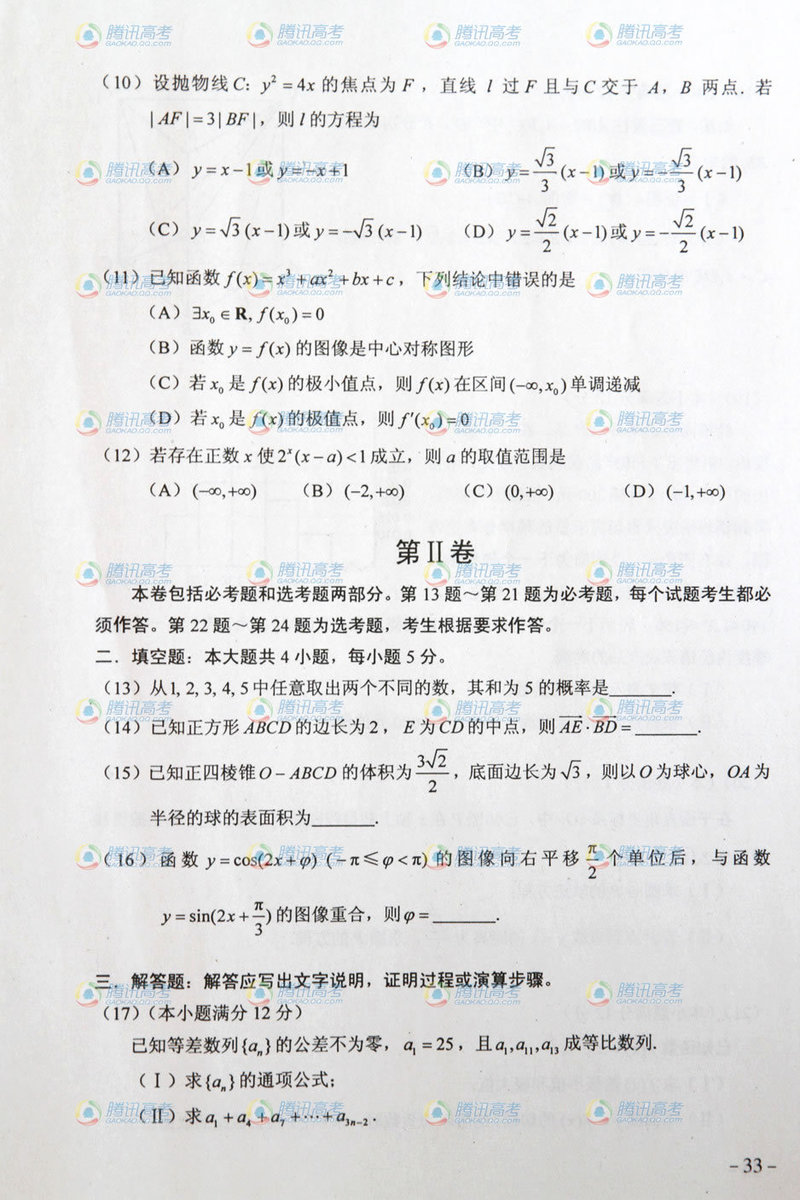 (10) 设抛物线 C: y² = 4x 的焦点为 F，直线 l 过 F 且与 C 交于 A，B 两点. 若
|AF| = 3|BF|，则 l 的方程为
(A) y = x − 1 或 y = −x + 1 (B) y = √3/3 (x − 1) 或 y = −√3/3 (x − 1)
(C) y = √3 (x − 1) 或 y = −√3 (x − 1) (D) y = √2/2 (x − 1) 或 y = −√2/2 (x − 1)
(11) 已知函数 f(x) = x³ + ax² + bx + c，下列结论中错误的是
(A) ∃x₀ ∈ R, f(x₀) = 0
(B) 函数 y = f(x) 的图像是中心对称图形
(C) 若 x₀ 是 f(x) 的极小值点，则 f(x) 在区间 (−∞, x₀) 单调递减
(D) 若 x₀ 是 f(x) 的极值点，则 f′(x₀) = 0
(12) 若存在正数 x 使 2ˣ(x − a) < 1 成立，则 a 的取值范围是
(A) (−∞, +∞) (B) (−2, +∞) (C) (0, +∞) (D) (−1, +∞)
第Ⅱ卷
本卷包括必考题和选考题两部分。第 13 题～第 21 题为必考题，每个试题考生都必
须作答。第 22 题～第 24 题为选考题，考生根据要求作答。
二．填空题：本大题共 4 小题，每小题 5 分。
(13) 从 1, 2, 3, 4, 5 中任意取出两个不同的数，其和为 5 的概率是______.
(14) 已知正方形 ABCD 的边长为 2，E 为 CD 的中点，则 AE · BD = ______.
(15) 已知正四棱锥 O − ABCD 的体积为 3√2/2，底面边长为 √3，则以 O 为球心，OA 为
半径的球的表面积为______.
(16) 函数 y = cos(2x + φ) (−π ≤ φ < π) 的图像向右平移 π/2 个单位后，与函数
y = sin(2x + π/3) 的图像重合，则 φ = ______.
三．解答题：解答应写出文字说明，证明过程或演算步骤。
(17)（本小题满分 12 分）
已知等差数列 {aₙ} 的公差不为零，a₁ = 25，且 a₁, a₁₁, a₁₃ 成等比数列.
(Ⅰ) 求 {aₙ} 的通项公式；
(Ⅱ) 求 a₁ + a₄ + a₇ + ⋯ + a₃ₙ₋₂.
- 33 -
腾讯高考
GAOKAO.QQ.COM